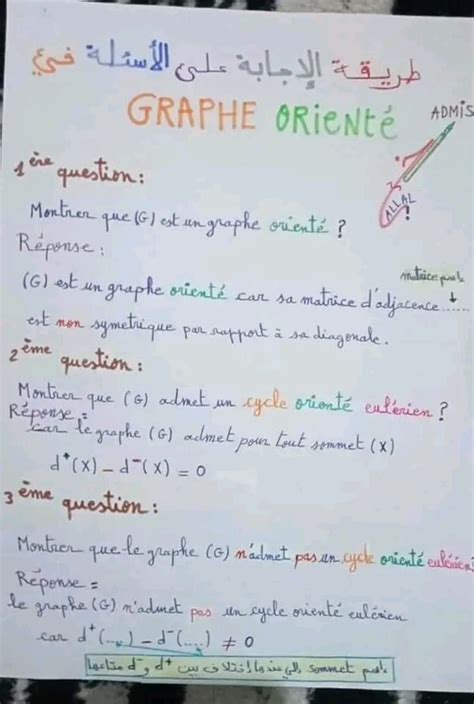 طريقة الإجابة على الأسئلة في
GRAPHE ORIENTé
ADMIS
ALLAL
?
1ère question:
Montrer que (G) est un graphe orienté ?
Réponse:
matrice
(G) est un graphe orienté car sa matrice d'adjacence......
est non symetrique par rapport à sa diagonale.
2ème question:
Montrer que (G) admet un cycle orienté eulérien ?
Réponse =
car le graphe (G) admet pour tout sommet (X)
d⁺(X) - d⁻(X) = 0
3ème question:
Montrer que le graphe (G) n'admet pas un cycle orienté eulérien?
Réponse =
le graphe (G) n'admet pas un cycle orienté eulérien
car d⁺(....) - d⁻(....) ≠ 0
sommet إلي عندها اختلاف بين d⁺ و d⁻ متاعها